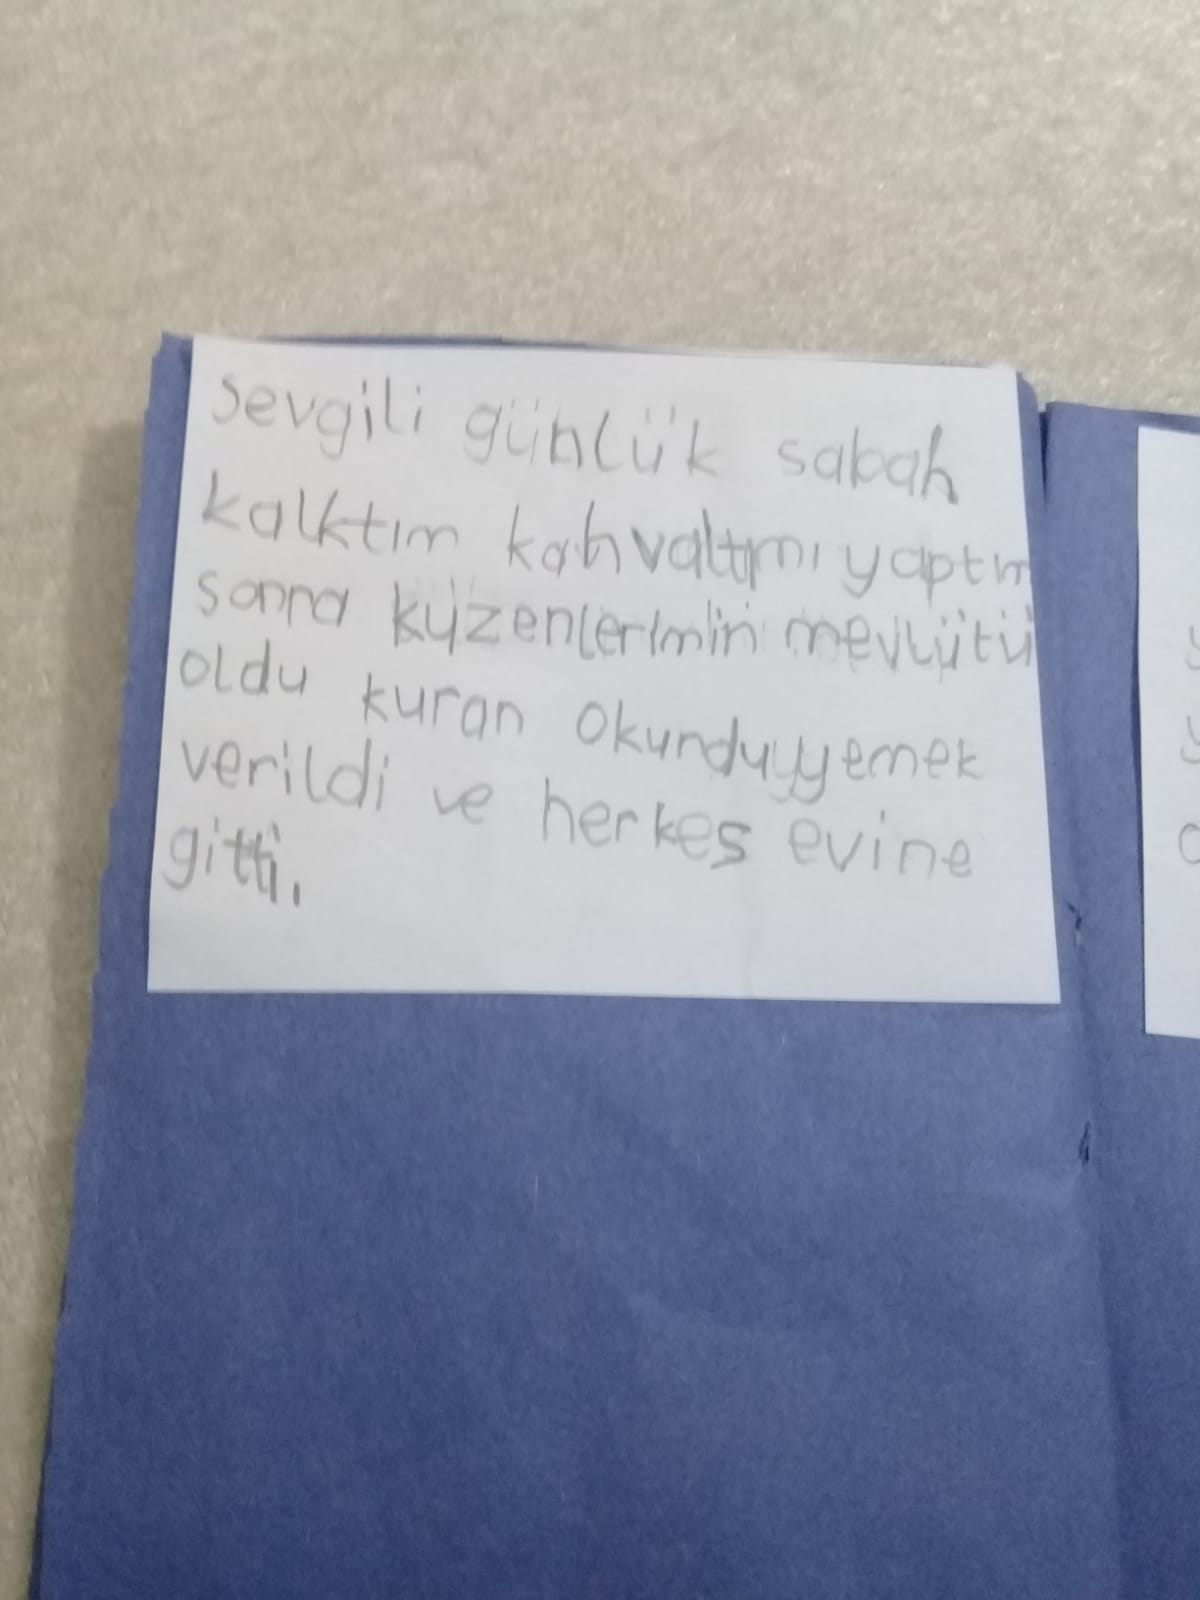 Sevgili günlük sabah
kalktım kahvaltımı yaptım
sonra küzenlerimin mevlütü
oldu kuran okunduyyemek
verildi ve herkes evine
gitti.